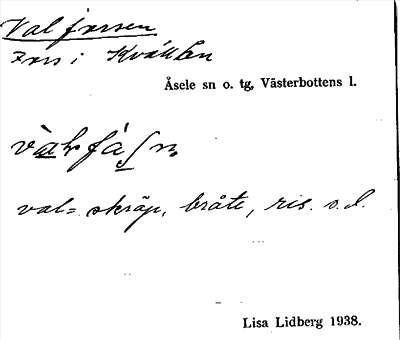 Valforsen
Fors i Kvällån
Åsele sn o. tg, Västerbottens l.
val= skräp, bråte, ris. s.d.
Lisa Lidberg 1938.